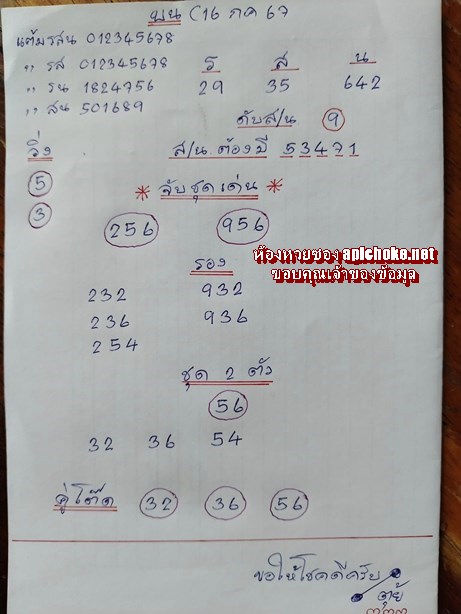 บน (16 กค 67
แต้มรสน 012345678
,, รส 012345678
,, รน 1824756
,, สน 501689
ร ส น
29 35 642
ดับส/น 9
ส/น ต้องมี 53471
วิ่ง
5
3
* จับชุดเด่น *
256 956
ห้องหวยซอง aplchoke.net
ขอบคุณเจ้าของข้อมูล
รอง
232 932
236 936
254
ชุด 2 ตัว
56
32 36 54
คู่โต๊ด 32 36 56
ขอให้โชคดีครับ
ตุ้ย